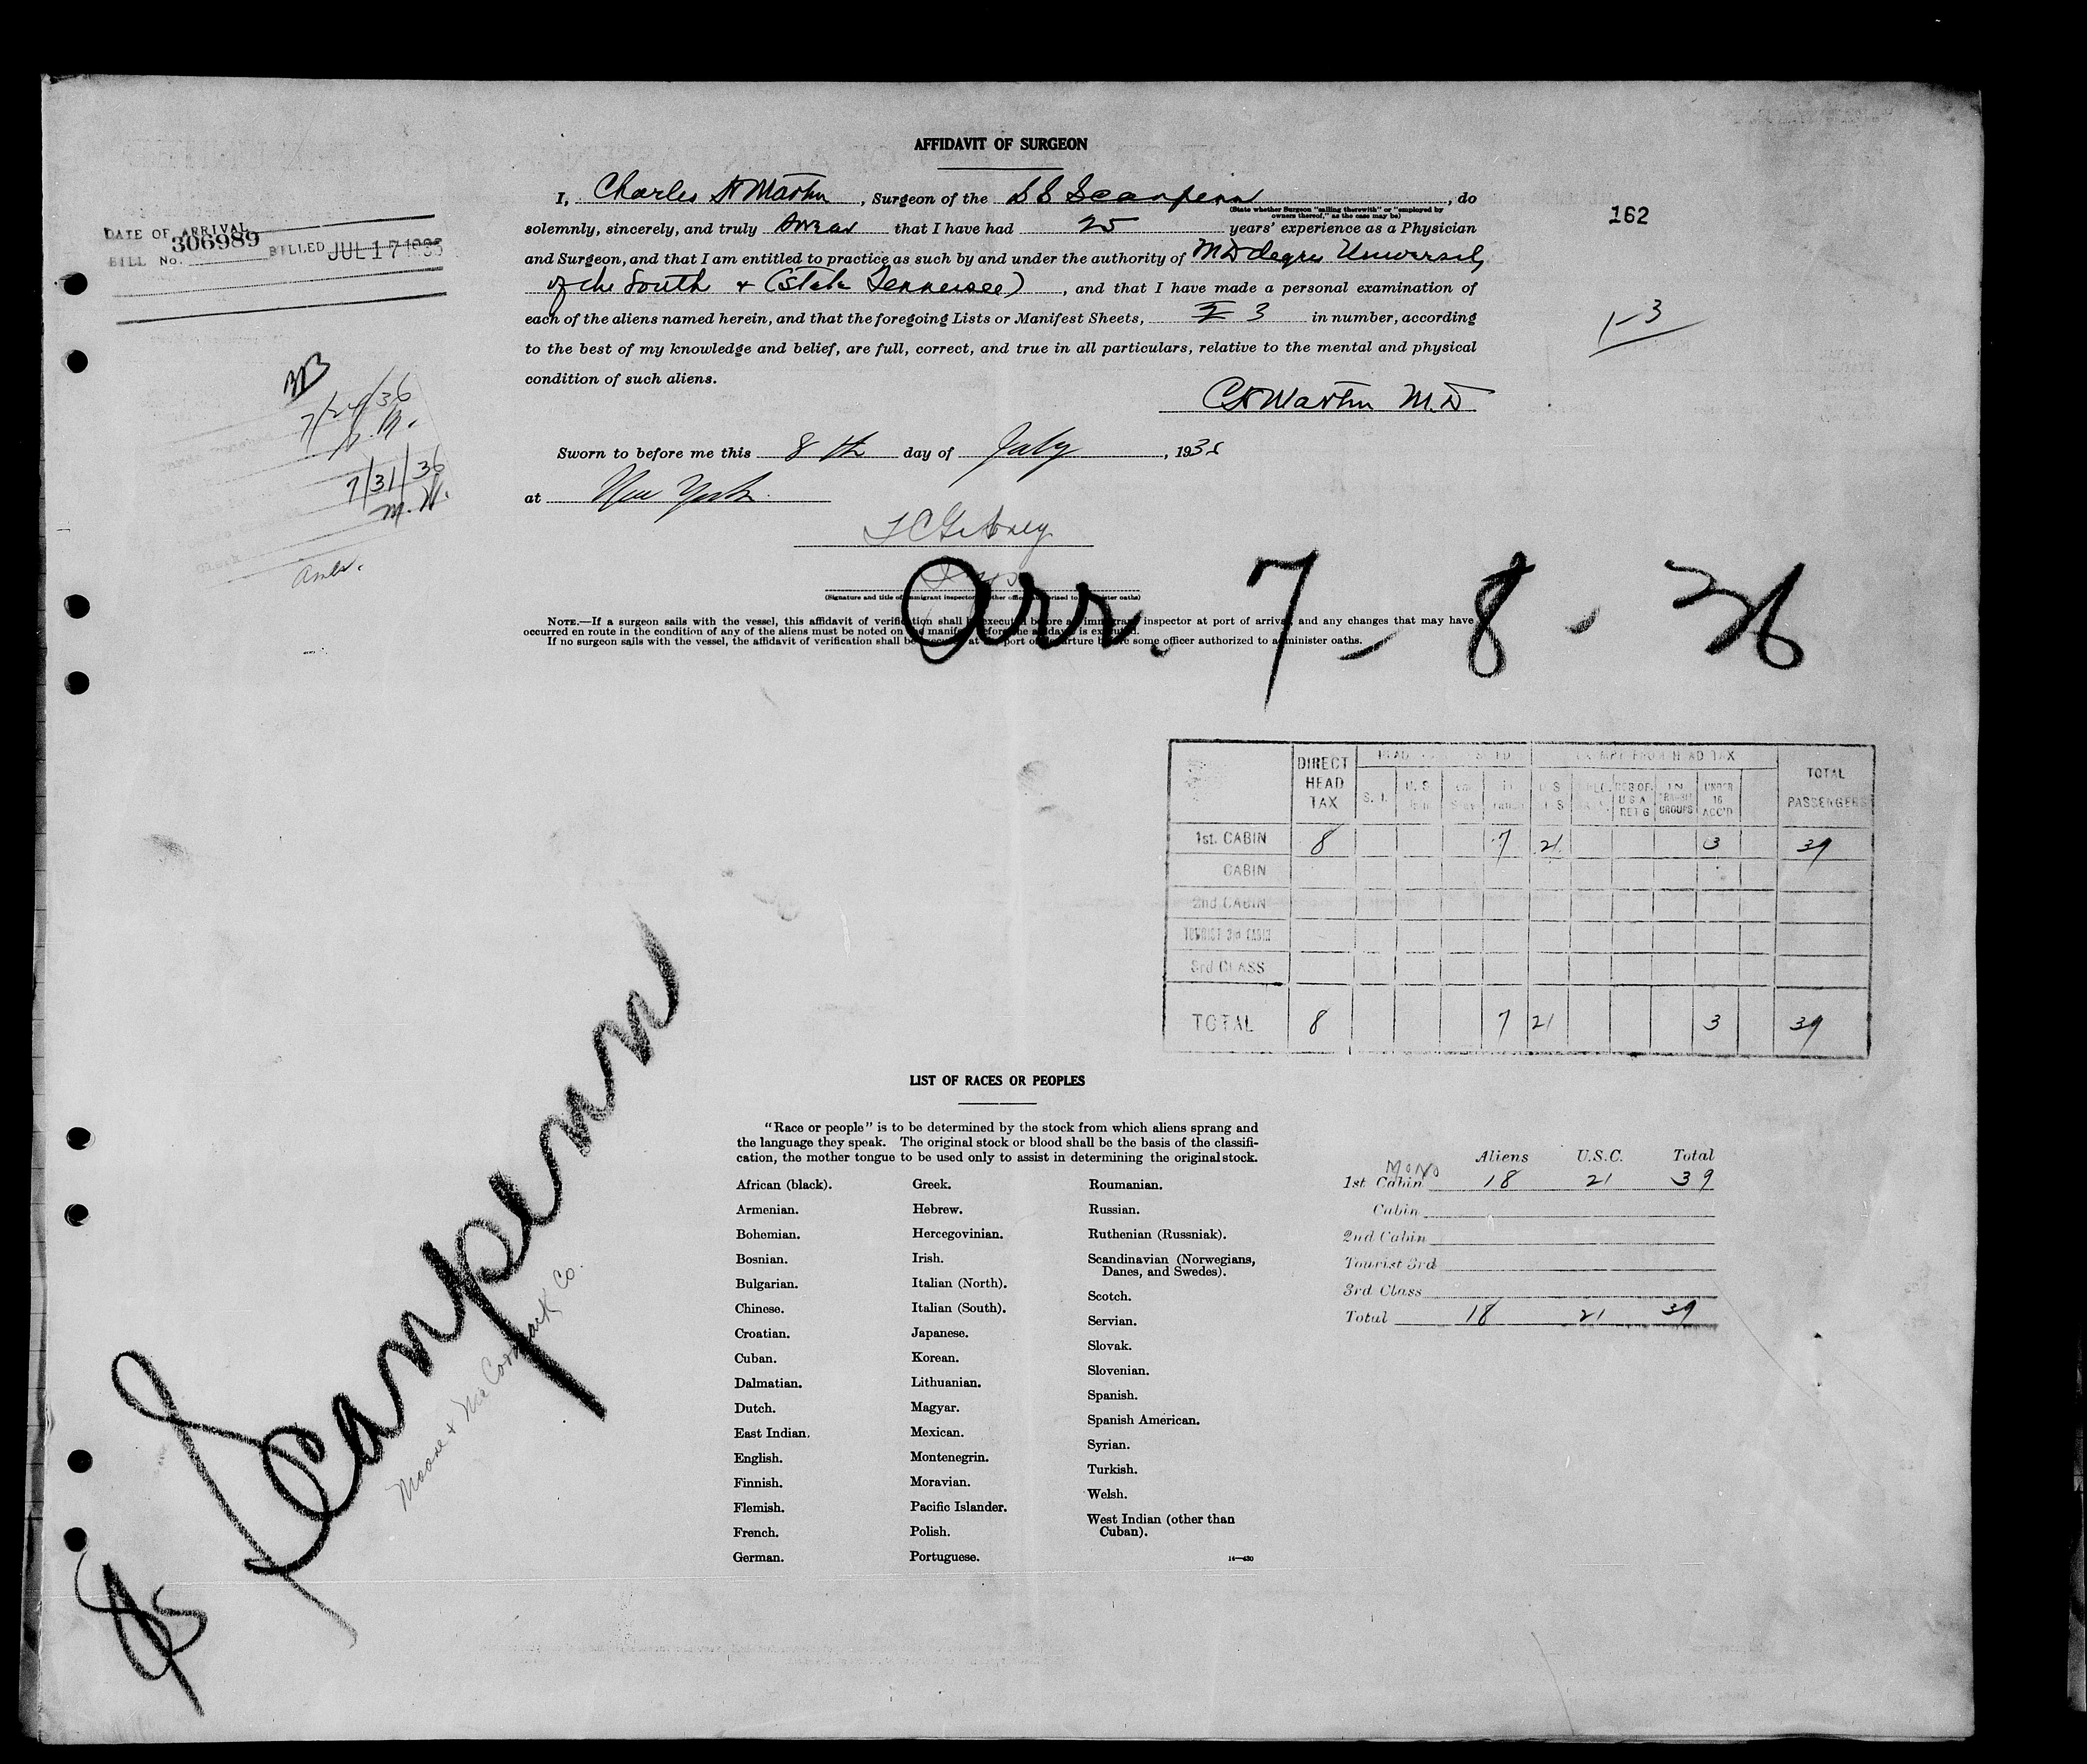 AFFIDAVIT OF SURGEON
I, Charles H Martin, Surgeon of the S S Scanpenn, do
(State whether Surgeon "sailing therewith" or "employed by
owners thereof," as the case may be)
solemnly, sincerely, and truly swear that I have had 25 years' experience as a Physician
and Surgeon, and that I am entitled to practice as such by and under the authority of MD degree University
of the South + (State Tennessee), and that I have made a personal examination of
each of the aliens named herein, and that the foregoing Lists or Manifest Sheets, 3 in number, according
to the best of my knowledge and belief, are full, correct, and true in all particulars, relative to the mental and physical
condition of such aliens.
CH Martin M.D
Sworn to before me this 8th day of July, 1936
at New York
(Signature and title of immigrant inspector or other officer authorized to administer oaths)
NOTE.—If a surgeon sails with the vessel, this affidavit of verification shall be executed before an immigrant inspector at port of arrival, and any changes that may have
occurred en route in the condition of any of the aliens must be noted on the manifest before the affidavit is executed.
If no surgeon sails with the vessel, the affidavit of verification shall be executed at the port of departure before some officer authorized to administer oaths.
Arr. 7-8-36
162
1-3
DATE OF ARRIVAL
BILL No. 306989 BILLED JUL 17 1936
7/24/36
7/31/36
M.H.
DIRECT HEAD TAX
S. I.
EXEMPT FROM HEAD TAX
IN TRANSIT GROUPS
UNDER 16 ACC'D
TOTAL PASSENGERS
1st. CABIN 8 7 21 3 39
CABIN
2nd CABIN
TOURIST 3rd CABIN
3rd CLASS
TOTAL 8 7 21 3 39
LIST OF RACES OR PEOPLES
"Race or people" is to be determined by the stock from which aliens sprang and
the language they speak. The original stock or blood shall be the basis of the classifi-
cation, the mother tongue to be used only to assist in determining the original stock.
African (black).
Armenian.
Bohemian.
Bosnian.
Bulgarian.
Chinese.
Croatian.
Cuban.
Dalmatian.
Dutch.
East Indian.
English.
Finnish.
Flemish.
French.
German.
Greek.
Hebrew.
Hercegovinian.
Irish.
Italian (North).
Italian (South).
Japanese.
Korean.
Lithuanian.
Magyar.
Mexican.
Montenegrin.
Moravian.
Pacific Islander.
Polish.
Portuguese.
Roumanian.
Russian.
Ruthenian (Russniak).
Scandinavian (Norwegians,
Danes, and Swedes).
Scotch.
Servian.
Slovak.
Slovenian.
Spanish.
Spanish American.
Syrian.
Turkish.
Welsh.
West Indian (other than
Cuban).
14—430
Aliens U.S.C. Total
MONO
1st Cabin 18 21 39
Cabin
2nd Cabin
Tourist 3rd
3rd Class
Total 18 21 39
SS Scanpenn
Moore & McCormack Co.